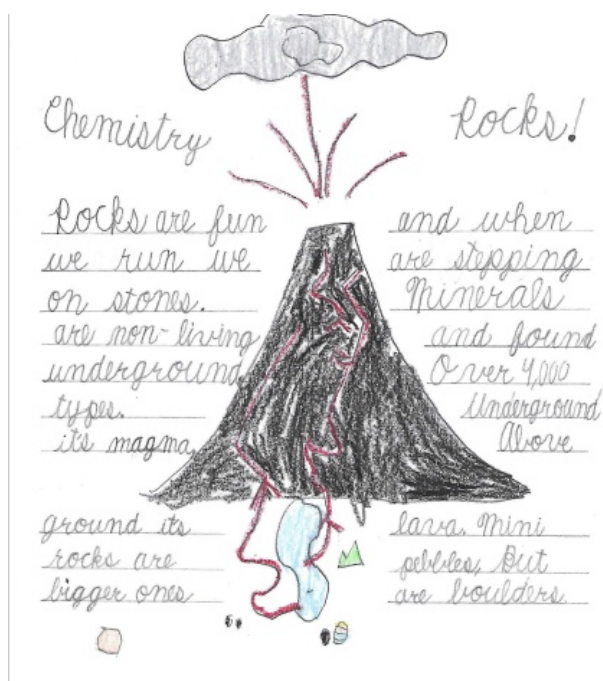 Chemistry Rocks!
Rocks are fun and when
we run we are stepping
on stones. Minerals
are non-living and found
underground Over 4,000
types. Underground
it's magma, Above
ground its lava. Mini
rocks are pebbles, But
bigger ones are boulders